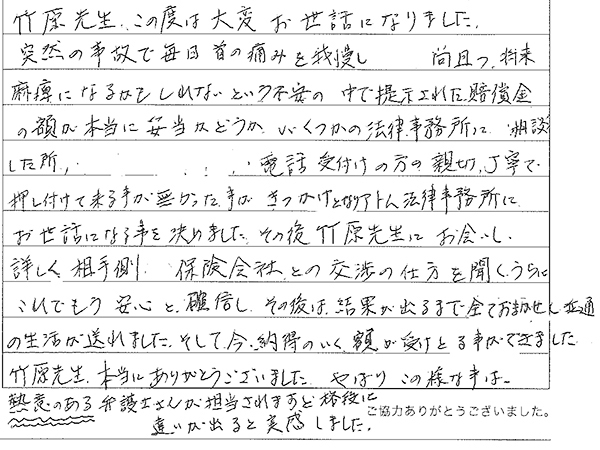 竹原先生、この度は大変お世話になりました。
突然の事故で毎日首の痛みを我慢し 尚且つ、将来
麻痺になるかもしれないという不安の中で提示された賠償金
の額が本当に妥当かどうか、いくつかの法律事務所に、相談
した所、 電話受付けの方の親切、丁寧で
押し付けて来る事が無かった事がきっかけとなりアトム法律事務所に
お世話になる事を決めました。その後竹原先生にお会いし、
詳しく相手側、保険会社との交渉の仕方を聞くうちに
これでもう安心と、確信し、その後は、結果が出るまで全ておまかせし普通
の生活が送れました。そして、今、納得のいく額が受けとる事ができました
竹原先生、本当にありがとうございました。やはり この様な事は、
熱意のある弁護士さんが担当されますと格段に
ご協力ありがとうございました。
違いが出ると実感しました。